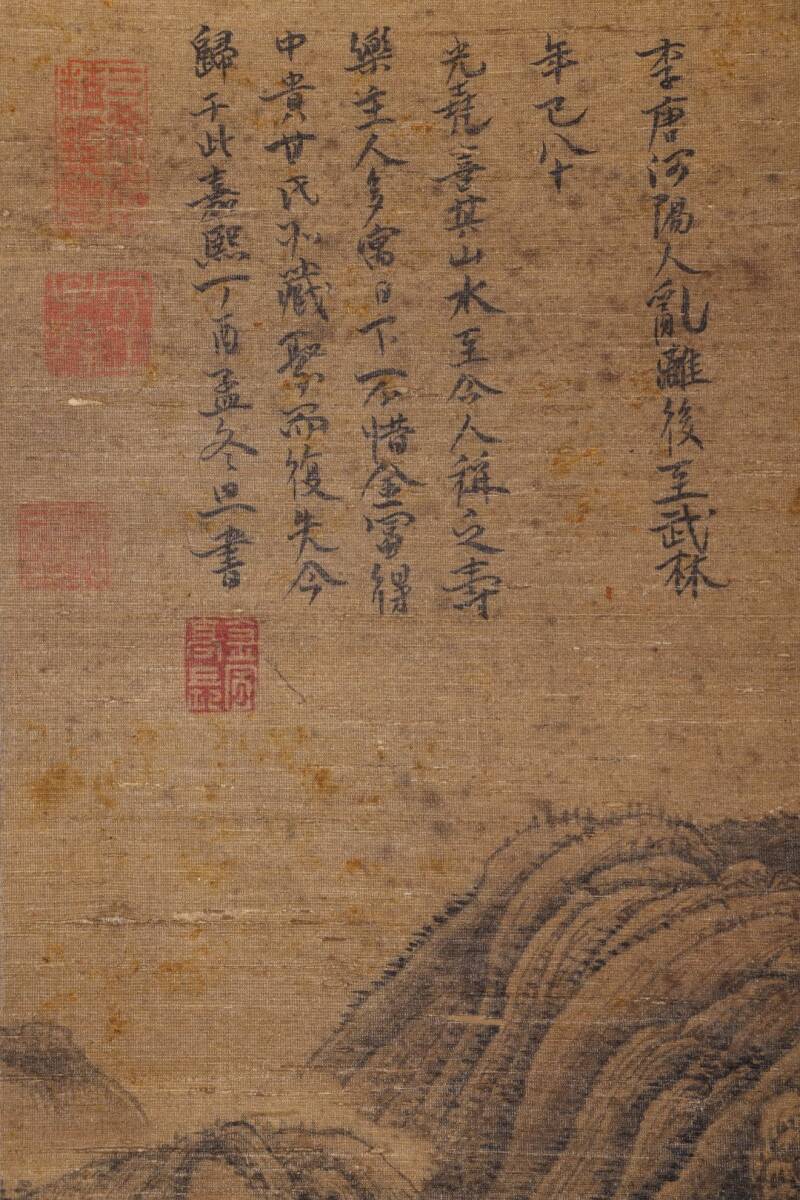 李唐河陽人亂離後至武林
年已八十
光堯喜其山水至今人稱之壽
樂主人多寓日下不惜金富得
中貴甘氏所藏聚而復失今
歸于此嘉熙丁酉孟冬旦書